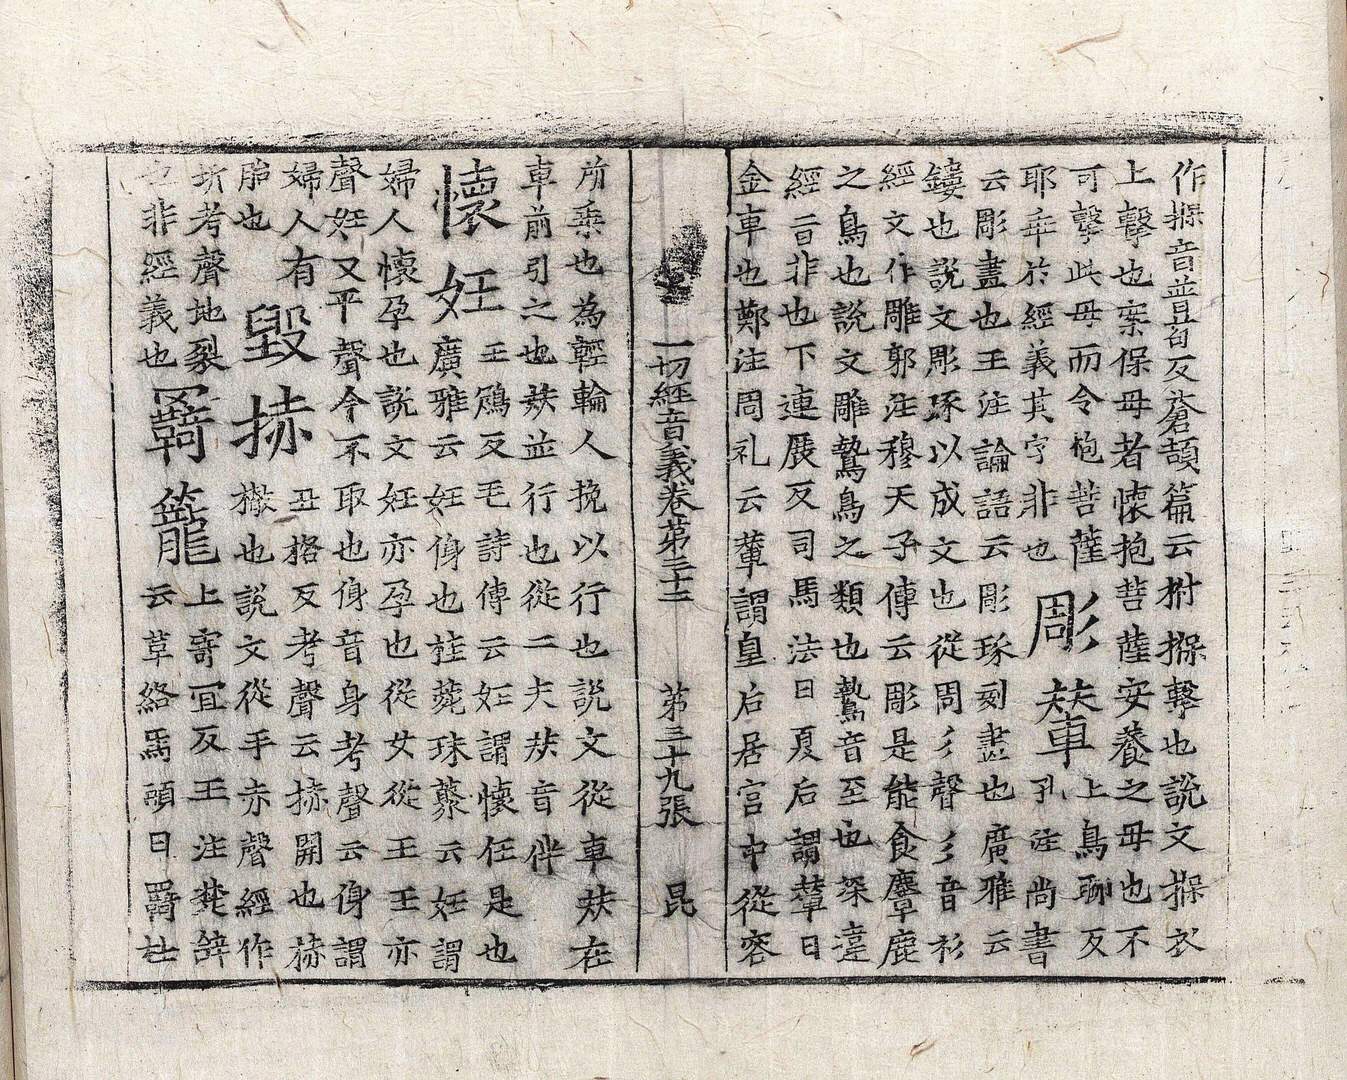 作㨽音普苟反蒼頡篇云拊㨽擊也說文㨽衣
上擊也案保母者懷抱菩薩安養之母也不
可擊此母而令抱菩薩 彫輦 上鳥聊反
耶乖於經義其字非也 孔注尚書
云彫畫也王注論語云彫琢刻畫也廣雅云
鏤也說文彫琢以成文也從周彡聲彡音衫
經文作雕郭注穆天子傳云彫是能食麞鹿
之鳥也說文雕鷙鳥之類也鷙音至也深違
經旨非也下連展反司馬法曰夏后謂輦曰
金車也鄭注周礼云輦謂皇后居宮中從容
一切經音義卷第三十二 第三十九張 昆
所乘也為輕輪人挽以行也說文從車㚘在
車前引之也㚘並行也從二夫㚘音伴
懷妊 壬鴆反毛詩傳云妊謂懷任是也
廣雅云妊侽也桂菀珠藂云妊謂
婦人懷孕也說文妊亦孕也從女從壬壬亦
聲妊又平聲今不取也侽音身考聲云侽謂
婦人有 毀㨋 丑格反考聲云㨋開也㨋
胎也 㯙也說文從手赤聲經作
坼考聲地裂 羇籠 上寄冝反王注楚辞
也非經義也 云草絡馬頭曰羇杜